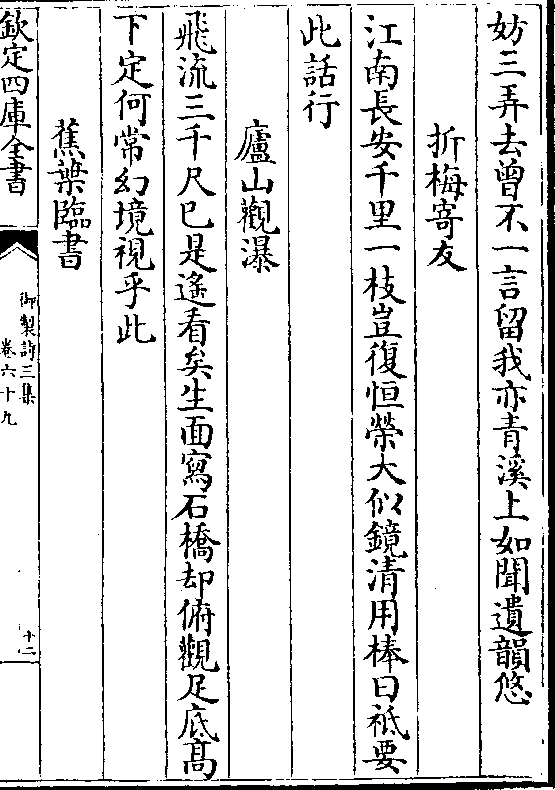 妨三弄去曾不一言留我亦青溪上如聞遺韻悠
折梅寄友
江南長安千里一枝豈復恒榮大似鏡清用棒曰祗要
此話行
廬山觀瀑
飛流三千尺巳是遙看矣生面寫石橋却俯觀足底髙
下定何常幻境視乎此
蕉葉臨書
欽定四庫全書
御製詩三集
卷六十九
十二